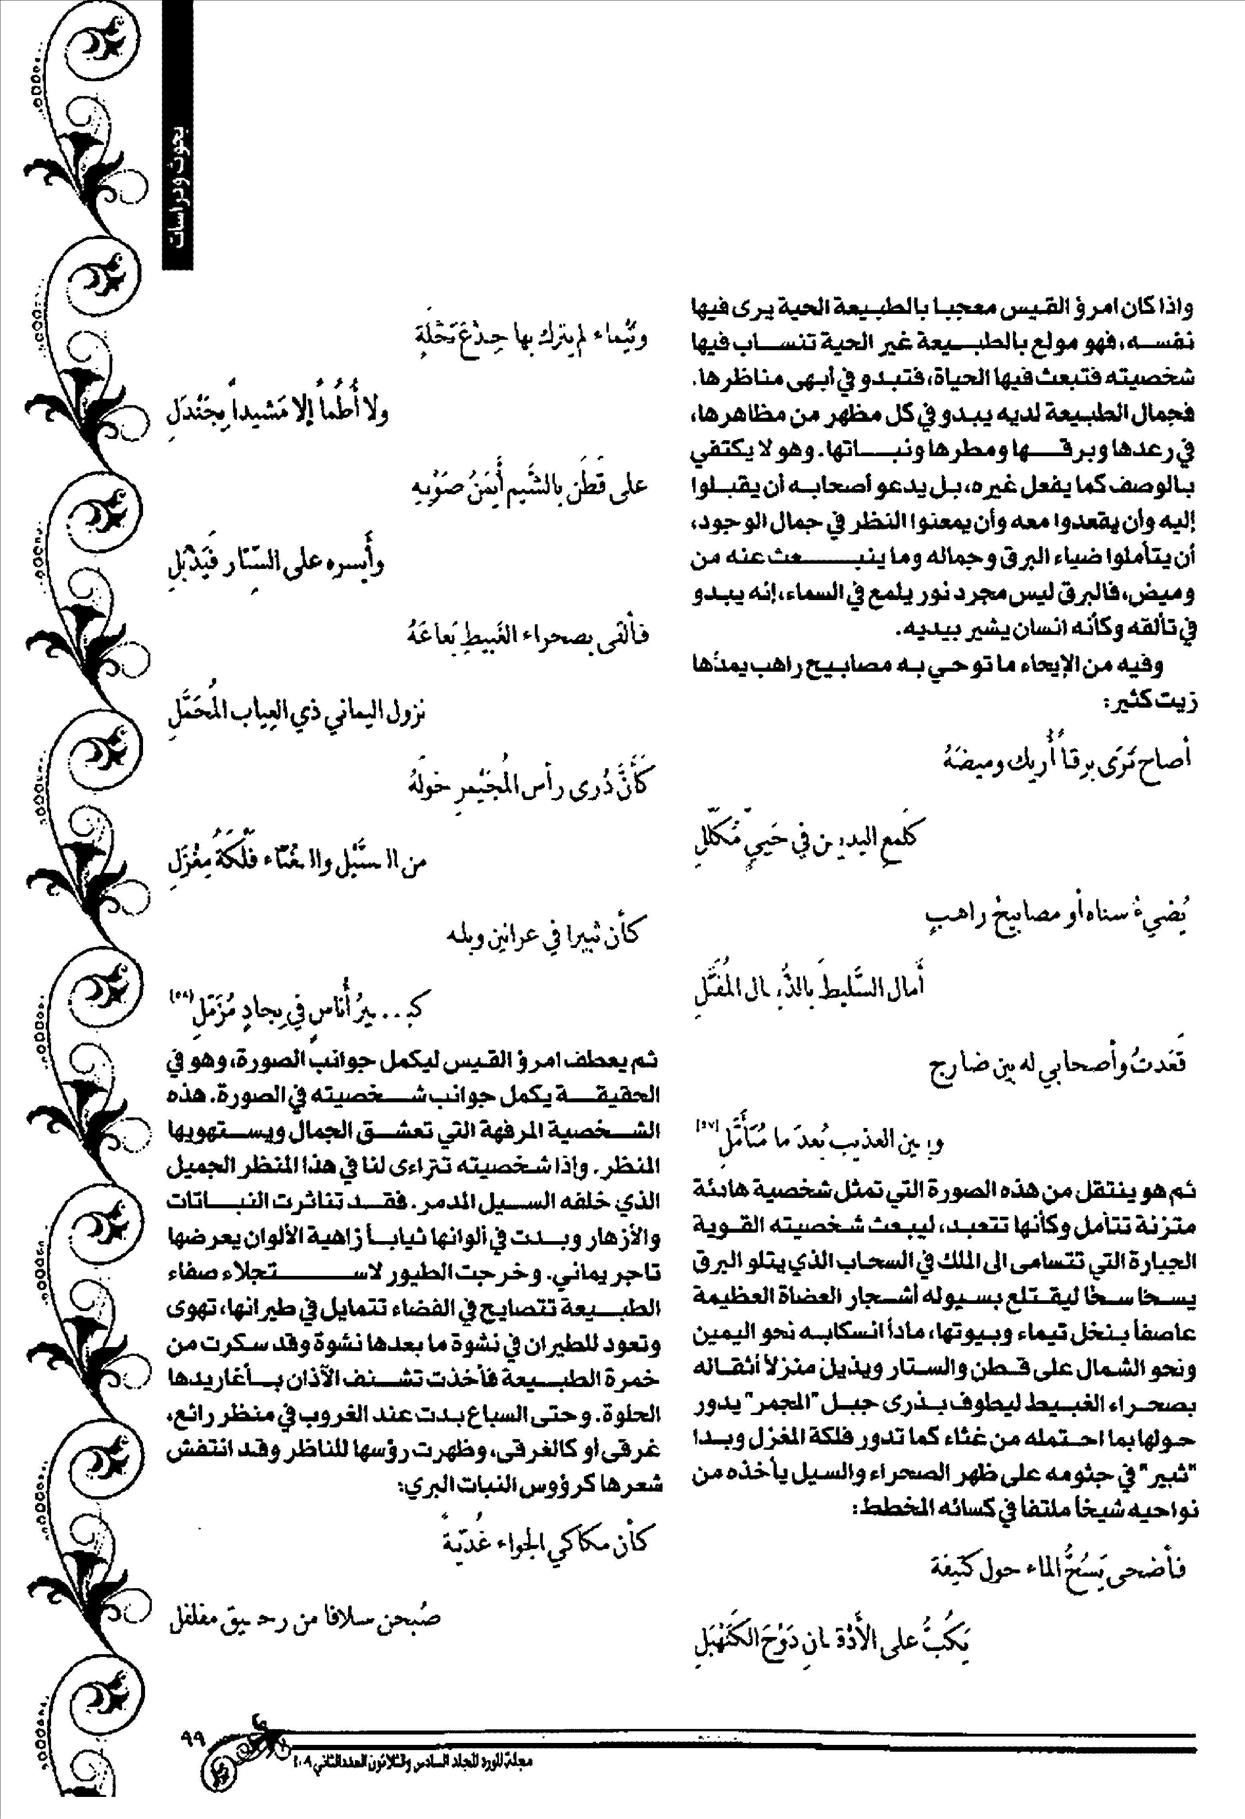 بحوث ودراسات
واذا كان امرؤ القيس معجبا بالطبيعة الحية يرى فيها
نفسه، فهو مولع بالطبيعة غير الحية تنساب فيها
شخصيته فتبعث فيها الحياة، فتبدو في أبهى مناظرها.
فجمال الطبيعة لديه يبدو في كل مظهر من مظاهرها،
في رعدها وبرقها ومطرها ونباتها. وهو لا يكتفي
بالوصف كما يفعل غيره، بل يدعو أصحابه أن يقبلوا
إليه وأن يقعدوا معه وأن يمعنوا النظر في جمال الوجود،
أن يتأملوا ضياء البرق وجماله وما ينبعث عنه من
وميض، فالبرق ليس مجرد نور يلمع في السماء، إنه يبدو
في تألقه وكأنه انسان يشير بيديه.
وفيه من الإيحاء ما توحي به مصابيح راهب يمدّها
زيت كثير:
أصاح تَرَى برقاً أُريك وميضَهُ
كلَمعِ اليدين في حَبيٍّ مُكَلَّلِ
يُضيءُ سناه أو مصابيحُ راهبٍ
أَمال السَّليطَ بالذُّبال المُفَتَّلِ
قَعَدتُ وأصحابي له بين ضارج
وبين العذيب بُعدَ ما مُتَأَمَّلِ [٥٧]
ثم هو ينتقل من هذه الصورة التي تمثل شخصية هادئة
متزنة تتأمل وكأنها تتعبد، ليبعث شخصيته القوية
الجبارة التي تتسامى الى الملك في السحاب الذي يتلو البرق
يسحّا سحّا ليقتلع بسيوله أشجار العضاة العظيمة
عاصفاً بنخل تيماء وبيوتها، مادأ انسكابه نحو اليمين
ونحو الشمال على قطن والستار ويذبل منزلاً أثقاله
بصحراء الغبيط ليطوف بذرى جبل "المجمر" يدور
حولها بما احتمله من غثاء كما تدور فلكة المغزل وبدا
"ثبير" في جثومه على ظهر الصحراء والسيل يأخذه من
نواحيه شيخاً ملتفاً في كسائه المخطط:
فأضحى يَسُحُّ الماء حول كتيفة
يَكُبُّ على الأَذقانِ دَوْحَ الكَنَهْبَلِ
وتَيْماء لم يترك بها جِذْعَ نَخْلَةٍ
ولا أُطُماً إلا مَشيداً بِجَنْدَلِ
على قَطَن بالشَّيم أَيمَنُ صَوْبِه
وأَيسره على السِّتار فَيَذْبُلِ
فألقى بصحراء الغَبيطِ بَعاعَهُ
نزول اليماني ذي العِياب المُحَمَّلِ
كَأَنَّ ذُرى رأس المُجَيْمرِ حَولَهُ
من السَّيْل والغُثاء فَلْكَةُ مِغْزَلِ
كأن ثبيرا في عرانين وبله
كبيرُ أُناسٍ في بِجادٍ مُزَمَّلِ [٥٨]
ثم يعطف امرؤ القيس ليكمل جوانب الصورة، وهو في
الحقيقة يكمل جوانب شخصيته في الصورة. هذه
الشخصية المرفهة التي تعشق الجمال ويستهويها
المنظر. وإذا شخصيته تتراءى لنا في هذا المنظر الجميل
الذي خلفه السيل المدمر. فقد تناثرت النباتات
والأزهار وبدت في ألوانها ثياباً زاهية الألوان يعرضها
تاجر يماني. وخرجت الطيور لاستجلاء صفاء
الطبيعة تتصايح في الفضاء تتمايل في طيرانها، تهوى
وتعود للطيران في نشوة ما بعدها نشوة وقد سكرت من
خمرة الطبيعة فأخذت تشنف الآذان بأغاريدها
الحلوة. وحتى السباع بدت عند الغروب في منظر رائع،
غرقى أو كالغرقى، وظهرت رؤسها للناظر وقد انتفش
شعرها كرؤوس النبات البري:
كأن مكاكي الجواء غُدَيّةً
صُبحن سلافا من رحيق مفلفل
٩٩
مجلة المورد المجلد السادس والثلاثون العدد الثاني ٢٠٠٩